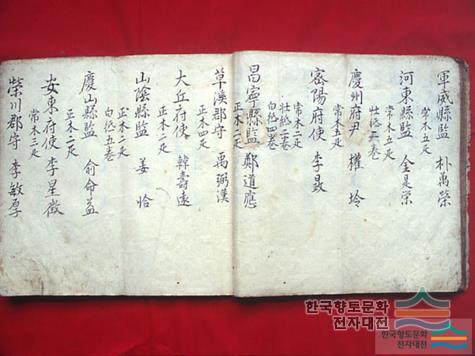 軍威縣監 朴萬榮
常木五疋
河東縣監 全是采
常木五疋
壯紙二卷
慶州府尹 權坅
常木五疋
密陽府使 李㬅
常木三疋
壯紙二卷
白紙四卷
昌寧縣監 鄭道應
正木二疋
草溪郡守 禹弼漢
正木四疋
大丘府使 韓壽遠
正木二疋
山陰縣監 姜恰
正木二疋
白紙五卷
慶山縣監 俞命益
正木二疋
安東府使 李星徵
常木三疋
榮川郡守 李敏厚
한국향토문화
전자대전
한국향토문화
전자대전